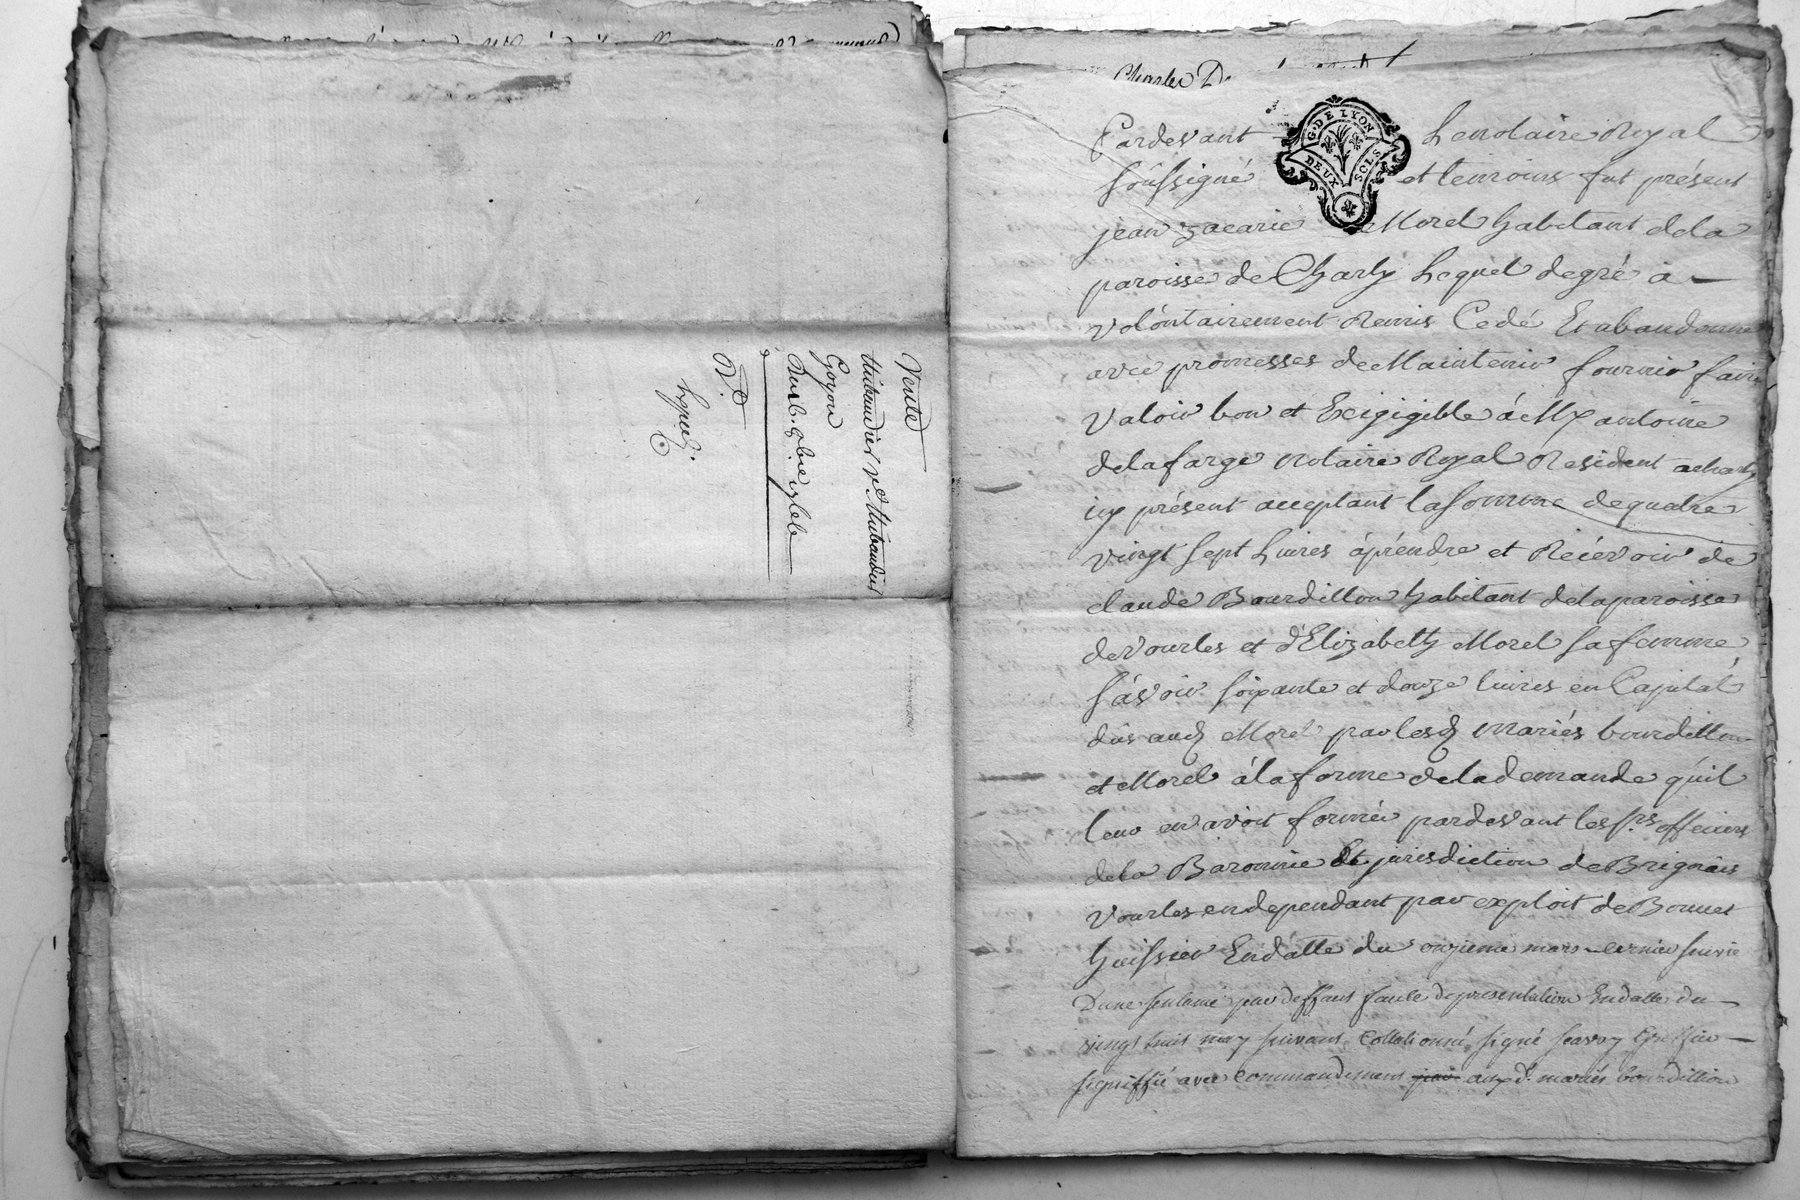 Vente
Thibaudier Vᵉ Thibaudier
Goyon
Charles
Pardevant Le notaire Royal
G. DE LYON
DEUX SOLS
soussigné et temoins fut présent
jean zacarie Morel habitant dela
paroisse de Charly Lequel degré a
volontairement Remis Cedé Et abandonné
avec promesses de Maintenir fournir faire
Valoir bon et Exigigible à Mᵉ antoine
delafarge notaire Royal Resident acharly
icy présent acceptant la somme dequatre
vingt sept Livres àpréndre et Recévoir de
claude Bourdillon habitant delaparoisse
deVourles et d'Elizabeth Morel sa femme
sávoir soixante et douze livres en Capital
dûs aud Morel par lesd mariés bourdillon
et Morel àla forme delademande quil
leur en avoit formée pardevant les srs officiers
dela Baronnie et jurisdiction deBrignais
Vourles endependant par exploit deBonnet
huissier Endatte du onzieme mars dernier suivie
Dune sentence par deffaut faute depresentation Endatte du
vingt huit may suivant, Collationné, signé Greffier
signiffié avec commandement par aux d. mariés bourdillon